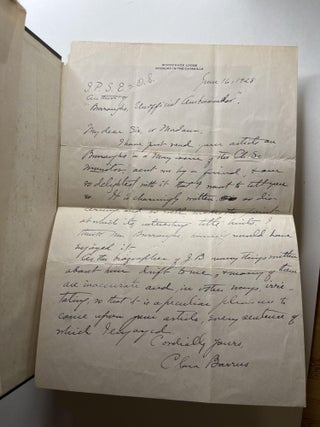 June 16, 1928
Author of
Burroughs, Unofficial Ambassador"
My dear Sir, or Madam,
I have just read your article on
Burroughs in a May issue of the Ch. Sc.
Monitor, sent me by a friend, & am
so delighted with it that I want to tell you
so. It is charmingly written
at which its interesting title hints. I
think Mr. Burroughs himself would have
enjoyed it.
As the biographer of J B many things written
about him drift to me, & many of them
are inaccurate and in other ways, irri-
tating, so that it is a peculiar pleasure to
come upon your article, every sentence of
which I enjoyed.
Cordially yours,
Clara Barrus